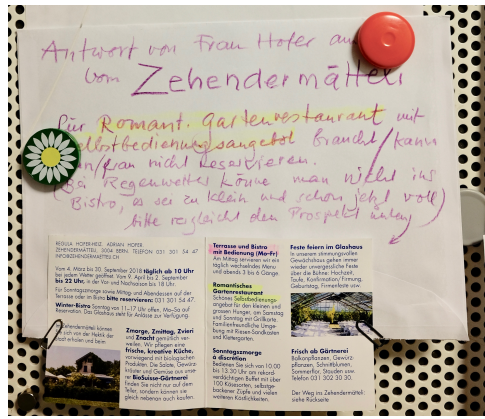 Antwort von Frau Hofer
vom Zehendermätteli
für Romant. Gartenrestaurant mit
Selbstbedienungsangebot braucht / kann
man nicht reservieren.
(Bei Regenwetter könne man nicht ins
Bistro, es sei zu klein und schon jetzt voll)
bitte vergleicht den Prospekt unten
REGULA HOFER-HEIZ ADRIAN HOFER
ZEHENDERMÄTTELI, 3004 BERN, TELEFON 031 301 54 47
INFO@ZEHENDERMAETTELI.CH
Vom 4. März bis 30. September 2018 täglich ab 10 Uhr
bei jedem Wetter geöffnet. Vom 9. April bis 2. September
bis 22 Uhr, in der Vor- und Nachsaison bis 18 Uhr.
Für Sonntagzmorge sowie Mittag- und Abendessen auf der
Terrasse oder im Bistro bitte reservieren: 031 301 54 47.
Winter-Bistro Sonntag von 11–17 Uhr offen, Mo-Sa auf
Reservation. Das Glashaus steht für Anlässe zur Verfügung.
Zehendermätteli können
sich von der Hektik der
Stadt erholen und beim
Zmorge, Zmittag, Zvieri
und Znacht gemütlich ver-
weilen. Wir pflegen eine
frische, kreative Küche,
vorwiegend mit biologischen
Produkten. Die Salate, Gewürz-
kräuter und Gemüse aus unse-
rer BioSuisse-Gärtnerei
finden Sie nicht nur auf dem
Teller, sondern können sie
gleich nebenan auch kaufen.
Terrasse und Bistro
mit Bedienung (Mo-Fr)
Am Mittag servieren wir ein
täglich wechselndes Menu
und abends 3 bis 6 Gänge.
Romantisches
Gartenrestaurant
Schönes Selbstbedienungs-
angebot für den kleinen und
grossen Hunger, am Samstag
und Sonntag mit Grillkarte.
Familienfreundliche Umge-
bung mit Riesen-Sandkasten
und Klettergarten.
Sonntagszmorge
à discretion
Bedienen Sie sich von 10.00
bis 13.30 Uhr am rekord-
verdächtigen Buffet mit über
100 Köstlichkeiten, selbstge-
backener Züpfe und vielen
weiteren Köstlichkeiten.
Feste feiern im Glashaus
In unserem stimmungsvollen
Gewächshaus gehen immer
wieder unvergessliche Feste
über die Bühne: Hochzeit,
Taufe, Konfirmation/Firmung,
Geburtstag, Firmenfeste usw.
Frisch ab Gärtnerei
Balkonpflanzen, Gewürz-
pflanzen, Schnittblumen,
Sommerflor, Stauden usw.
Telefon 031 302 30 30.
Der Weg ins Zehendermätteli:
siehe Rückseite